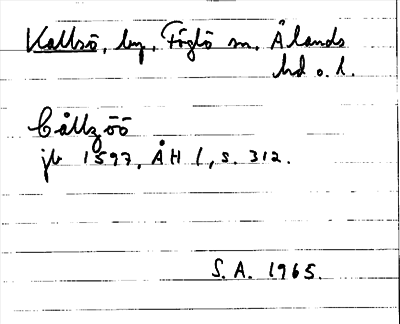 Kallsö, by, Föglö sn, Ålands
hd o. l.
Cållzöö
jb 1597, ÅH 1, s. 312.
S. A. 1965.